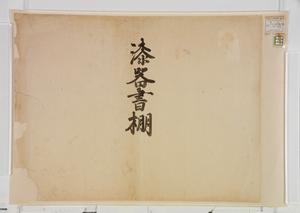 漆器書棚